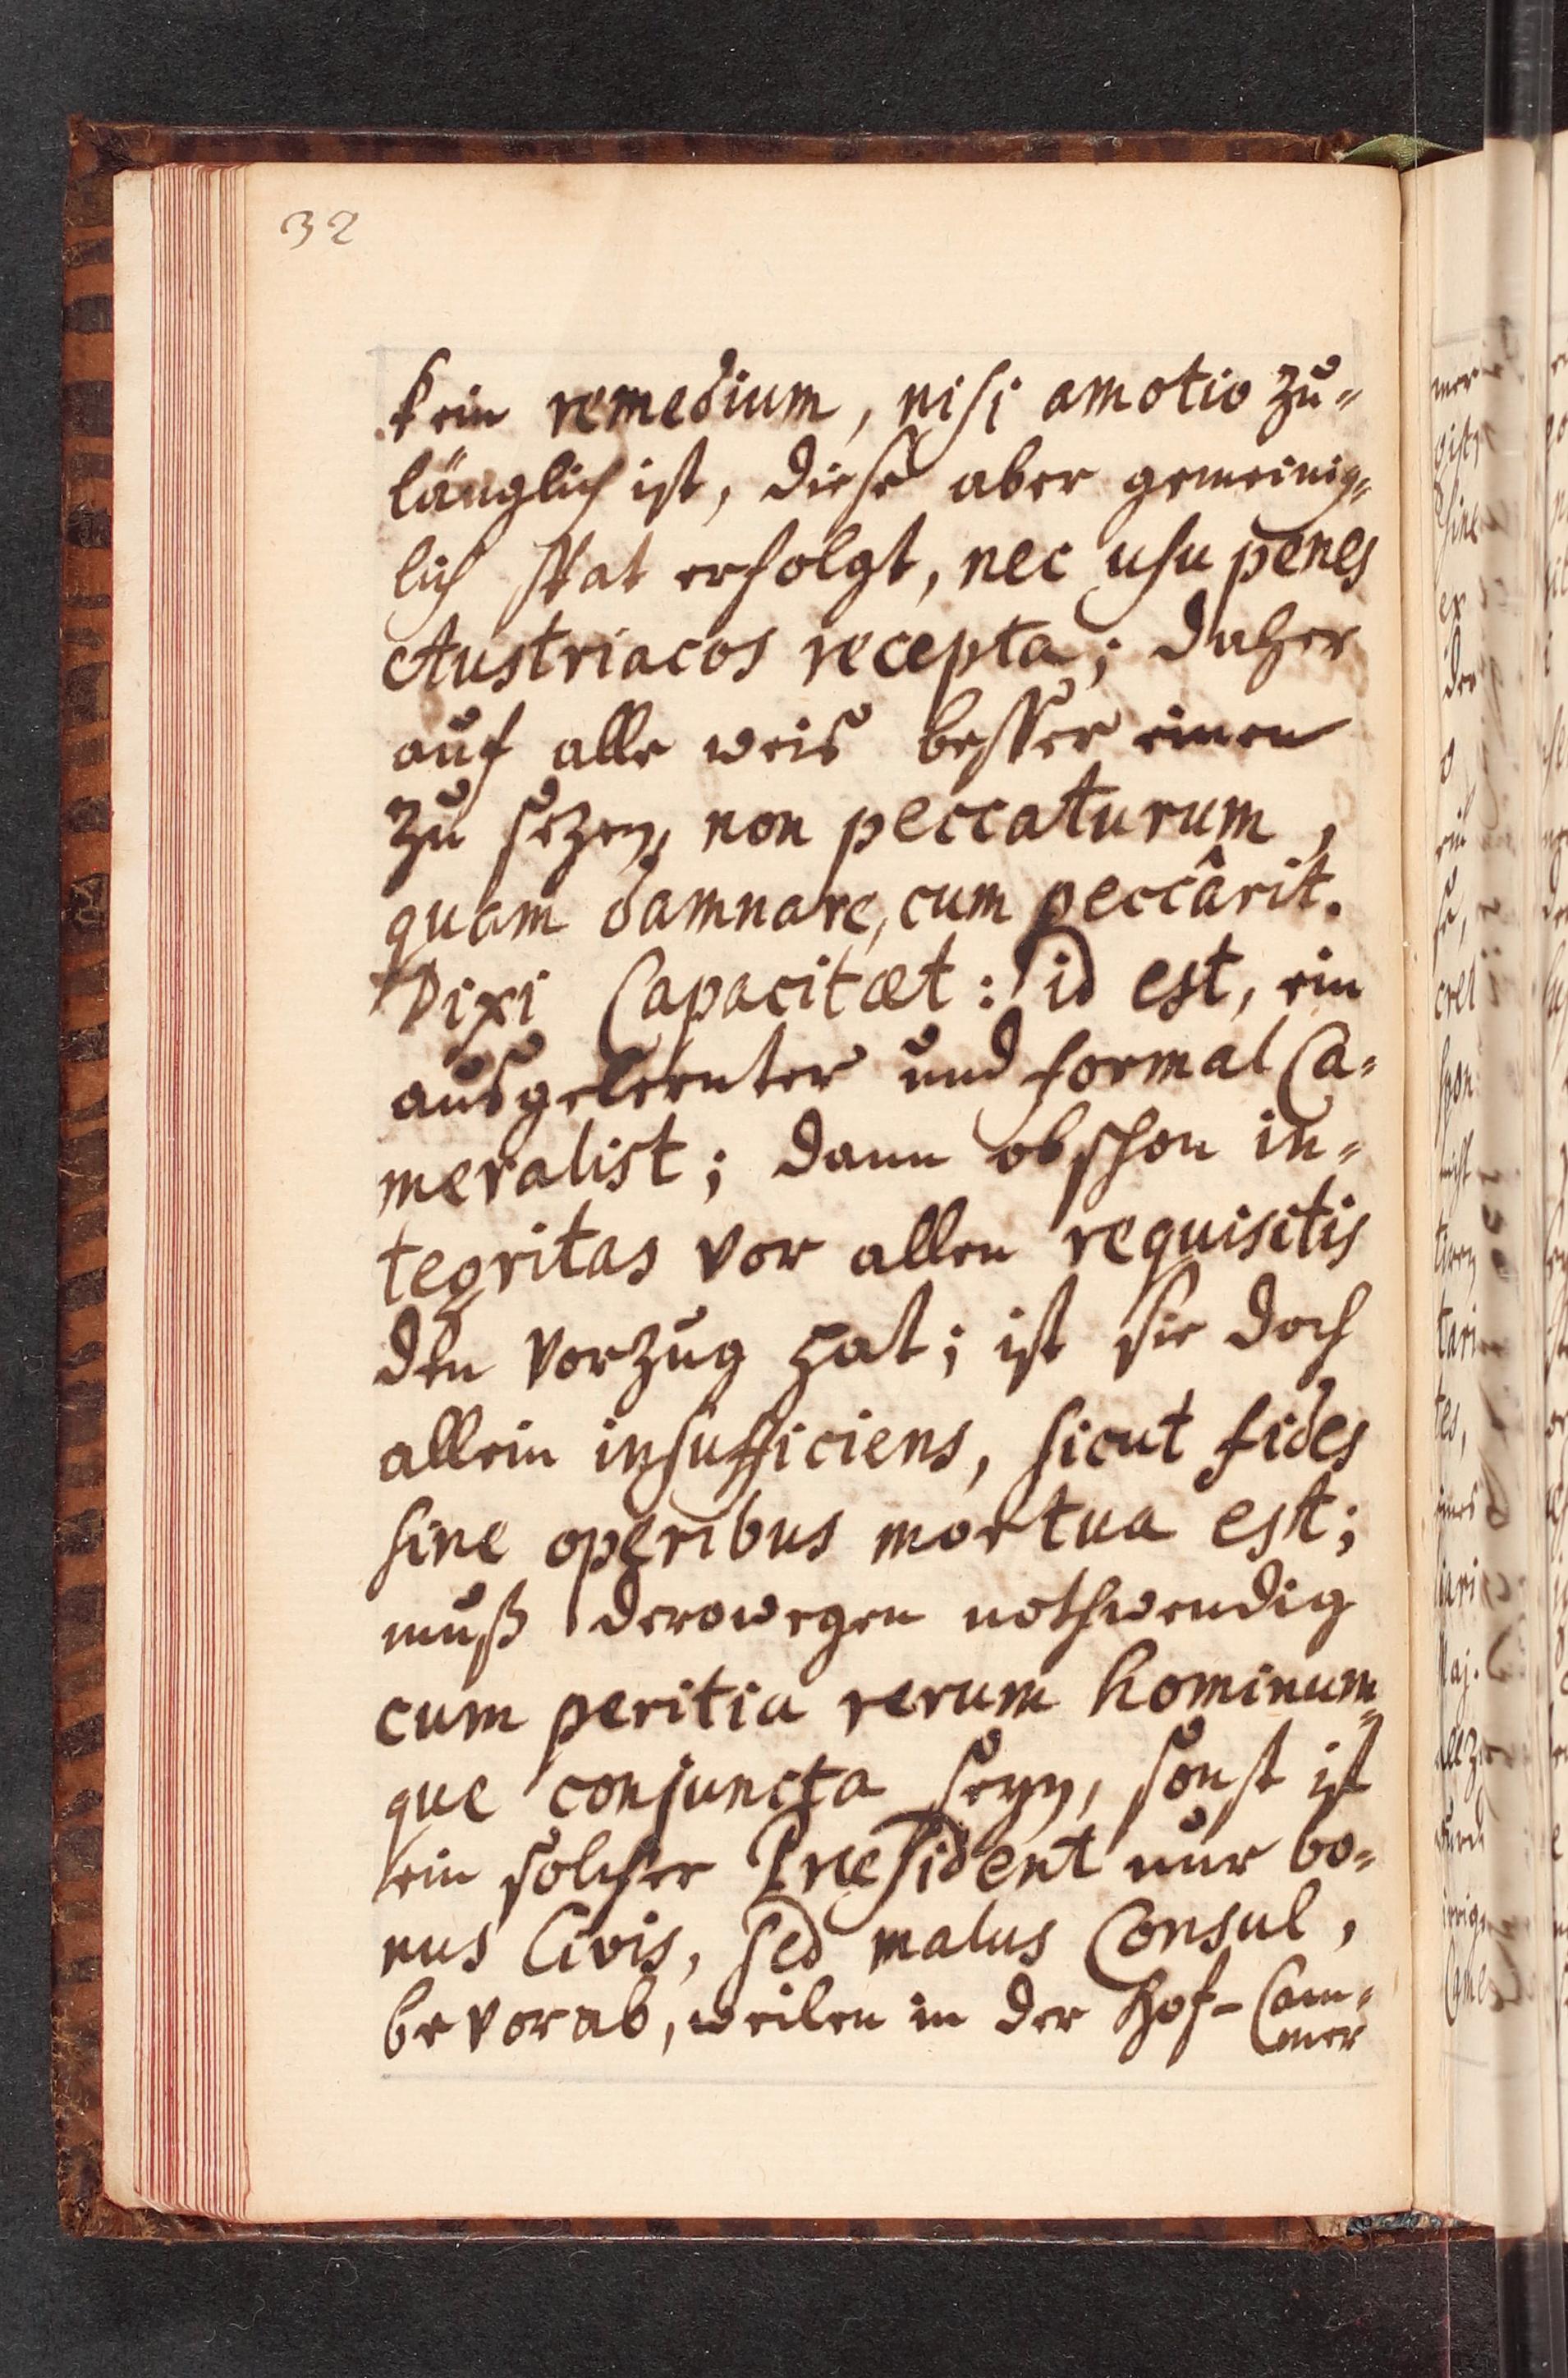 32
kein remedium, nisi amotio zu-
länglich ist, diese aber gemeinig-
lich spat erfolgt, nec usu penes
Austriacos recepta; daher
auf alle weis besser einen
zu sezen, non peccaturum,
quam damnare, cum peccârit.
Dixi Capacitæt: id est, ein
ausgelernter und formal Ca-
meralist; dann obschon in-
tegritas vor allen requisitis
den Vorzug hat; ist sie doch
allein insufficiens, sicut fides
sine operibus mortua est;
muß derowegen nothwendig
cum peritia rerum hominum-
que conjuncta seyn, sonst ist
ein solcher Præsident nur bo-
nus Civis, sed malus Consul,
bevorab, weilen in der Hof-Cam-
mer